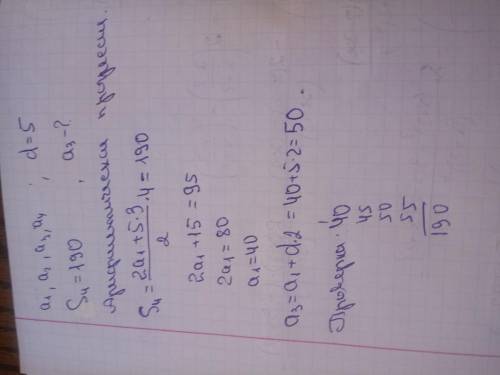 a₁, a₂, a₃, a₄ ; d=5
S₄=190 , a₃-?
Арифметическая прогрессия.
S₄ = (2a₁+5·3)/2 · 4 = 190
2a₁+15=95
2a₁=80
a₁=40
a₃=a₁+d·2=40+5·2=50.
Проверка: 40
45
50
55
190